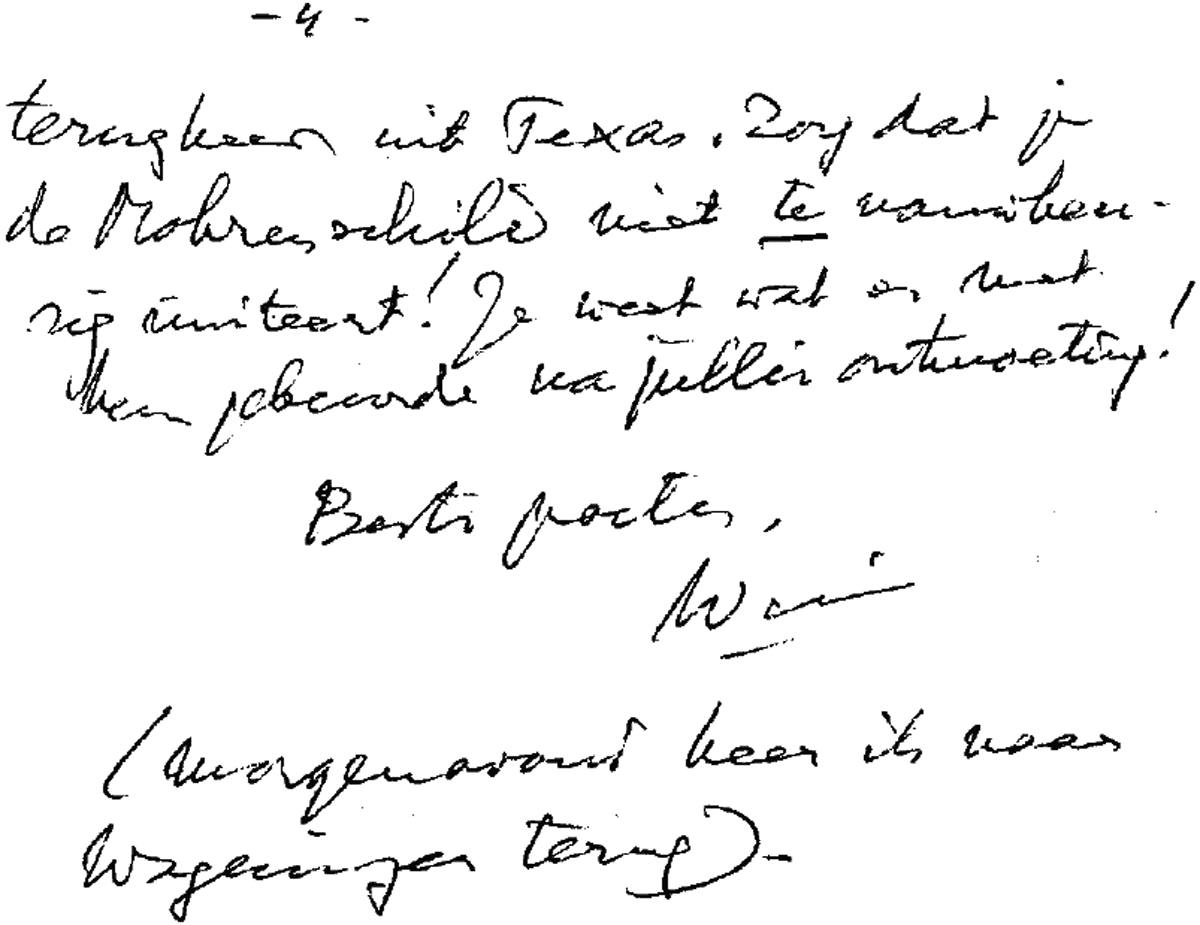 - 4 -
terugkeer uit Texas. Zorg dat je
de Mohrenschild niet te
! Je weet wat er met
hem gebeurde na jullie ontmoeting!
Beste groeten,
Wim
(Morgenavond keer ik naar
Wageningen terug).-